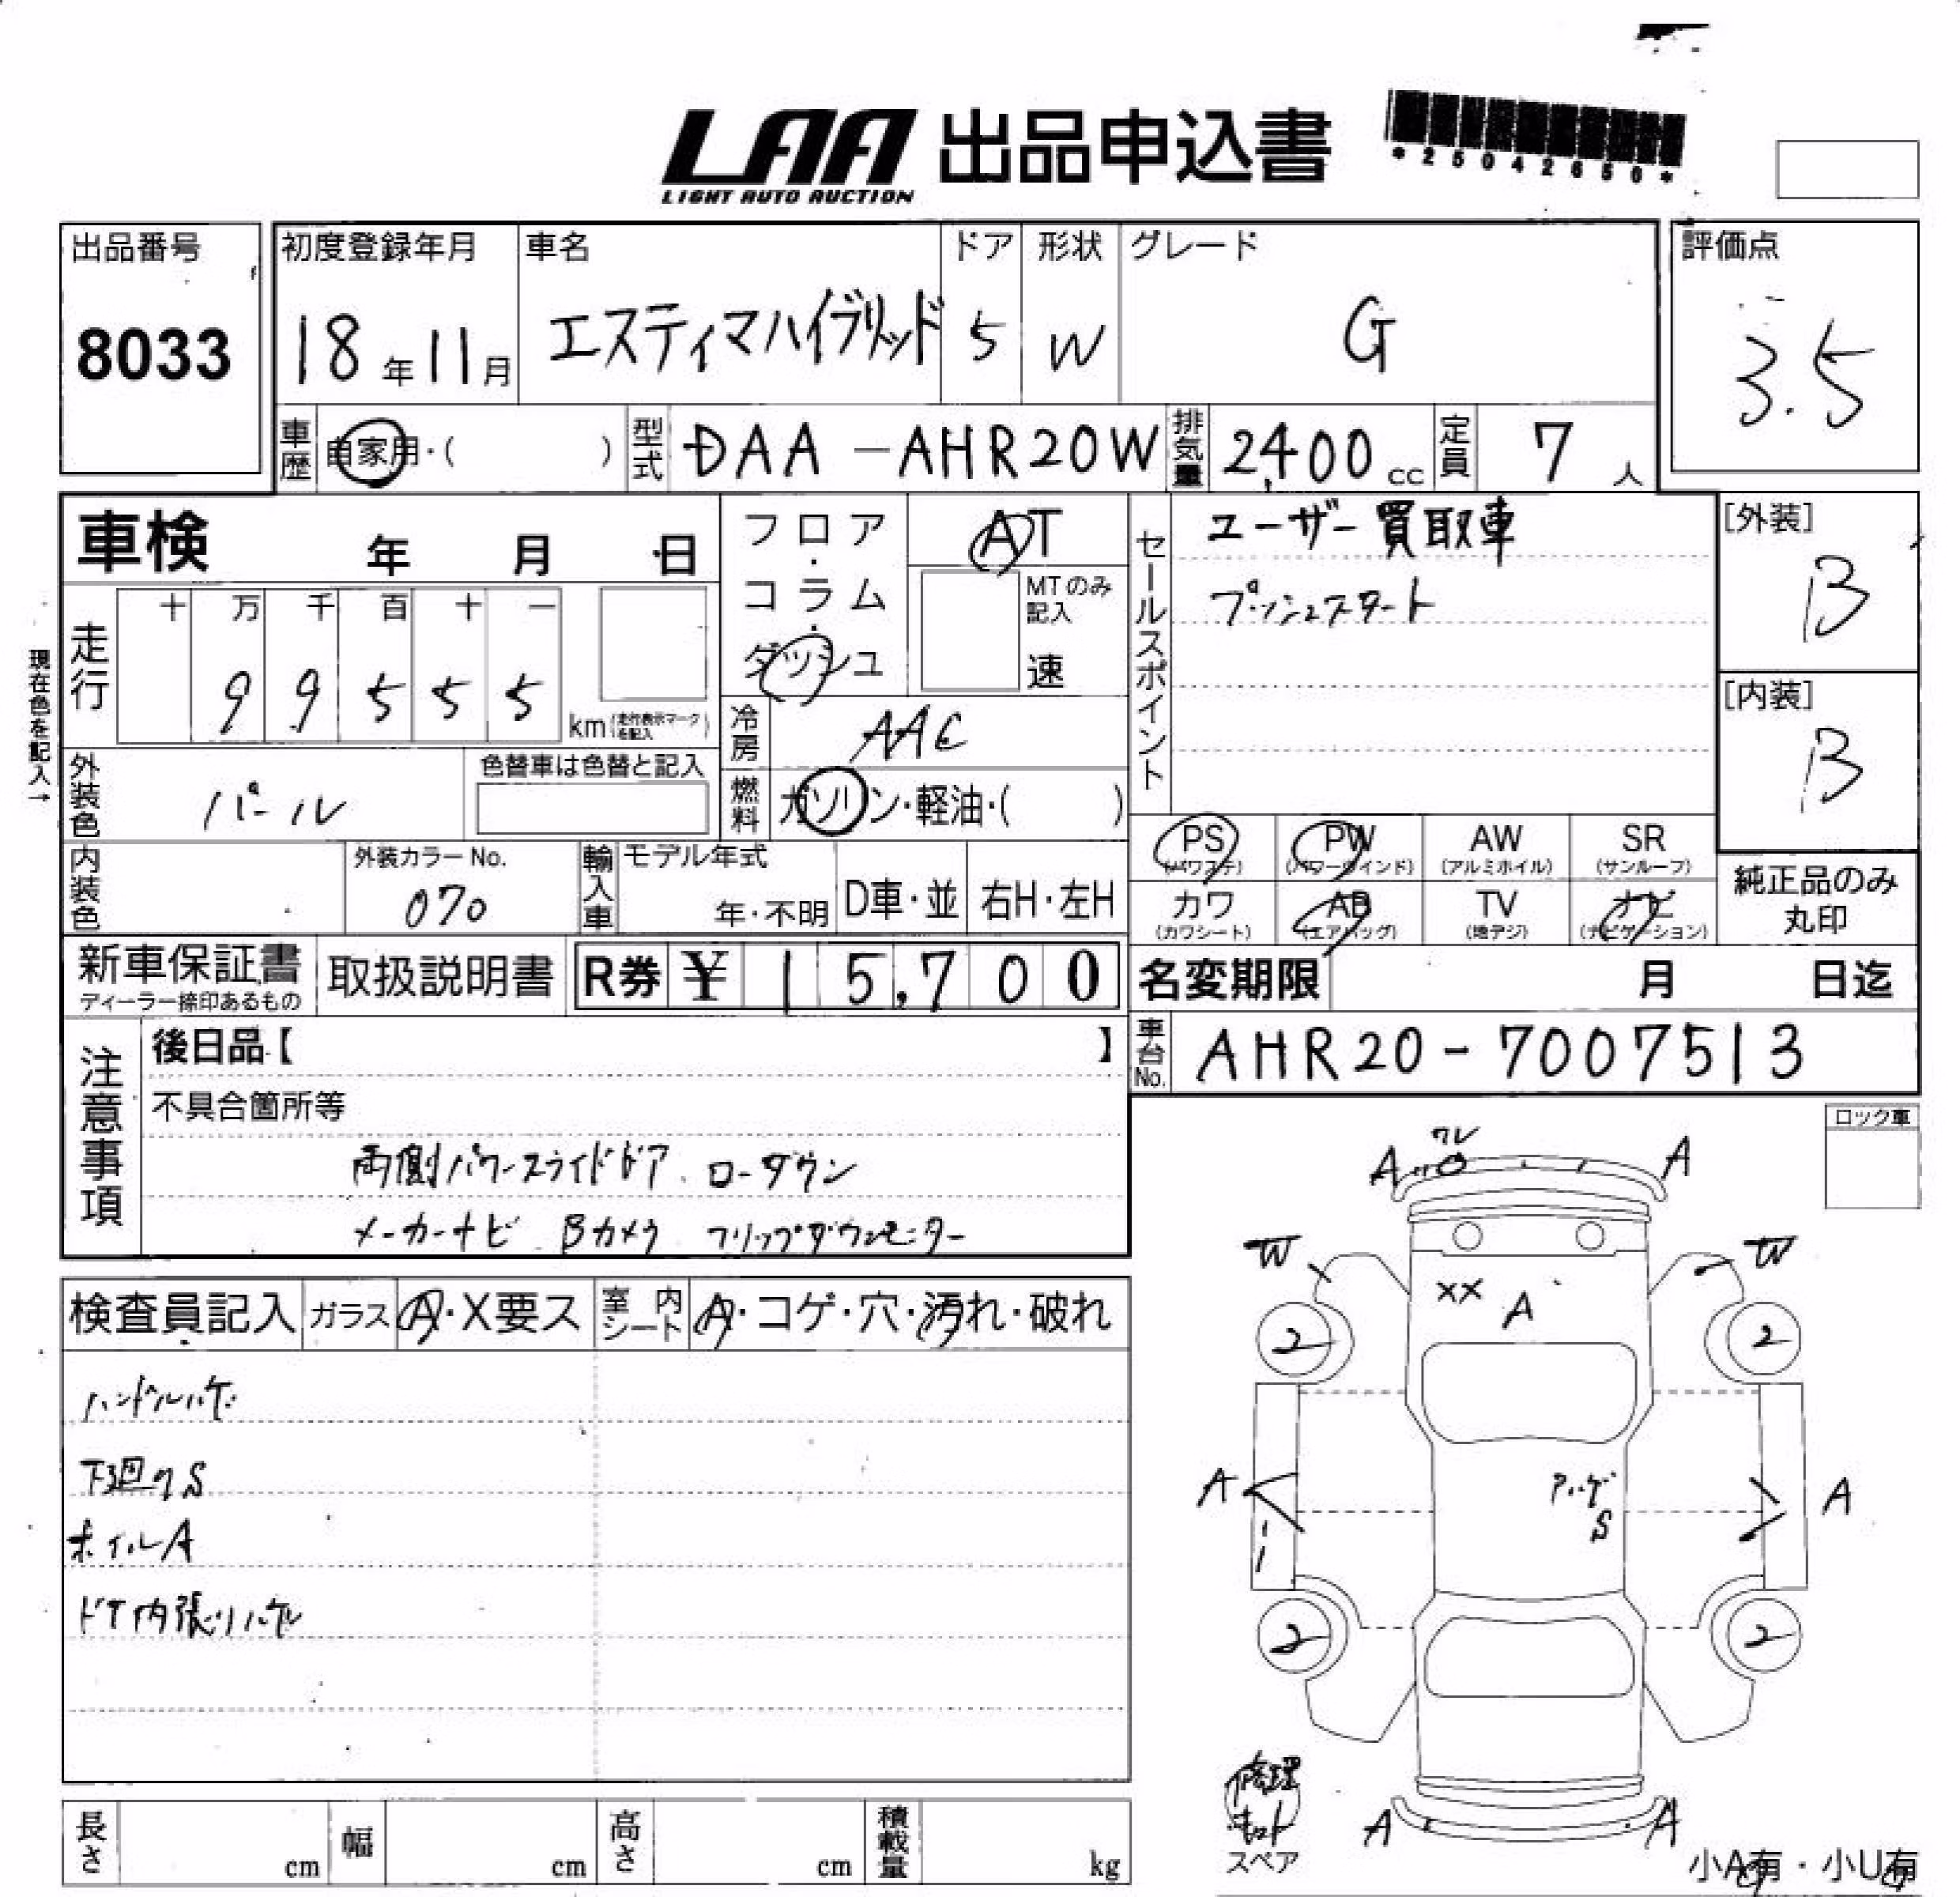 LAA 出品申込書
LIGHT AUTO AUCTION
*25042650*
出品番号
8033
初度登録年月
18年11月
車名
エスティマハイブリッド
ドア
5
形状
W
グレード
G
評価点
3.5
車歴
自家用・( )
型式
DAA-AHR20W
排気量
2,400cc
定員
7人
車検 年 月 日
フロア・コラム・ダッシュ
AT
MTのみ記入
速
セールスポイント
ユーザー買取車
プッシュスタート
[外装]
B
[内装]
B
現在色を記入→
走行
十 万 千 百 十 一
9 9 5 5 5
km(走行表示マークを記入)
冷房
AAC
外装色
パール
色替車は色替と記入
燃料
ガソリン・軽油・( )
PS
(パワステ)
PW
(パワーウィンド)
AW
(アルミホイル)
SR
(サンルーフ)
カワ
(カワシート)
AB
(エアバッグ)
TV
(地デジ)
ナビ
(ナビゲーション)
純正品のみ
丸印
内装色
外装カラーNo.
070
輸入車
モデル年式
年・不明
D車・並
右H・左H
新車保証書
ディーラー捺印あるもの
取扱説明書
R券 ¥ 15,700
名変期限 月 日迄
車台No.
AHR20-7007513
注意事項
後日品【 】
不具合箇所等
両側パワースライドドア ローダウン
メーカーナビ Bカメラ フリップダウンモニター
ロック車
検査員記入
ガラス
A・X要ス
室内シート
A・コゲ・穴・汚れ・破れ
ハンドルハゲ
下廻りS
ホイルA
ドア内張りハゲ
ワレ
A
A
W
W
XX
A
2
2
A
アハゲ
S
A
2
2
修理
キット
スペア
A
A
小A有・小U有
長さ cm
幅 cm
高さ cm
積載量 kg